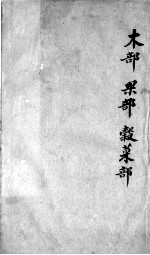 木部 果部 穀菜部